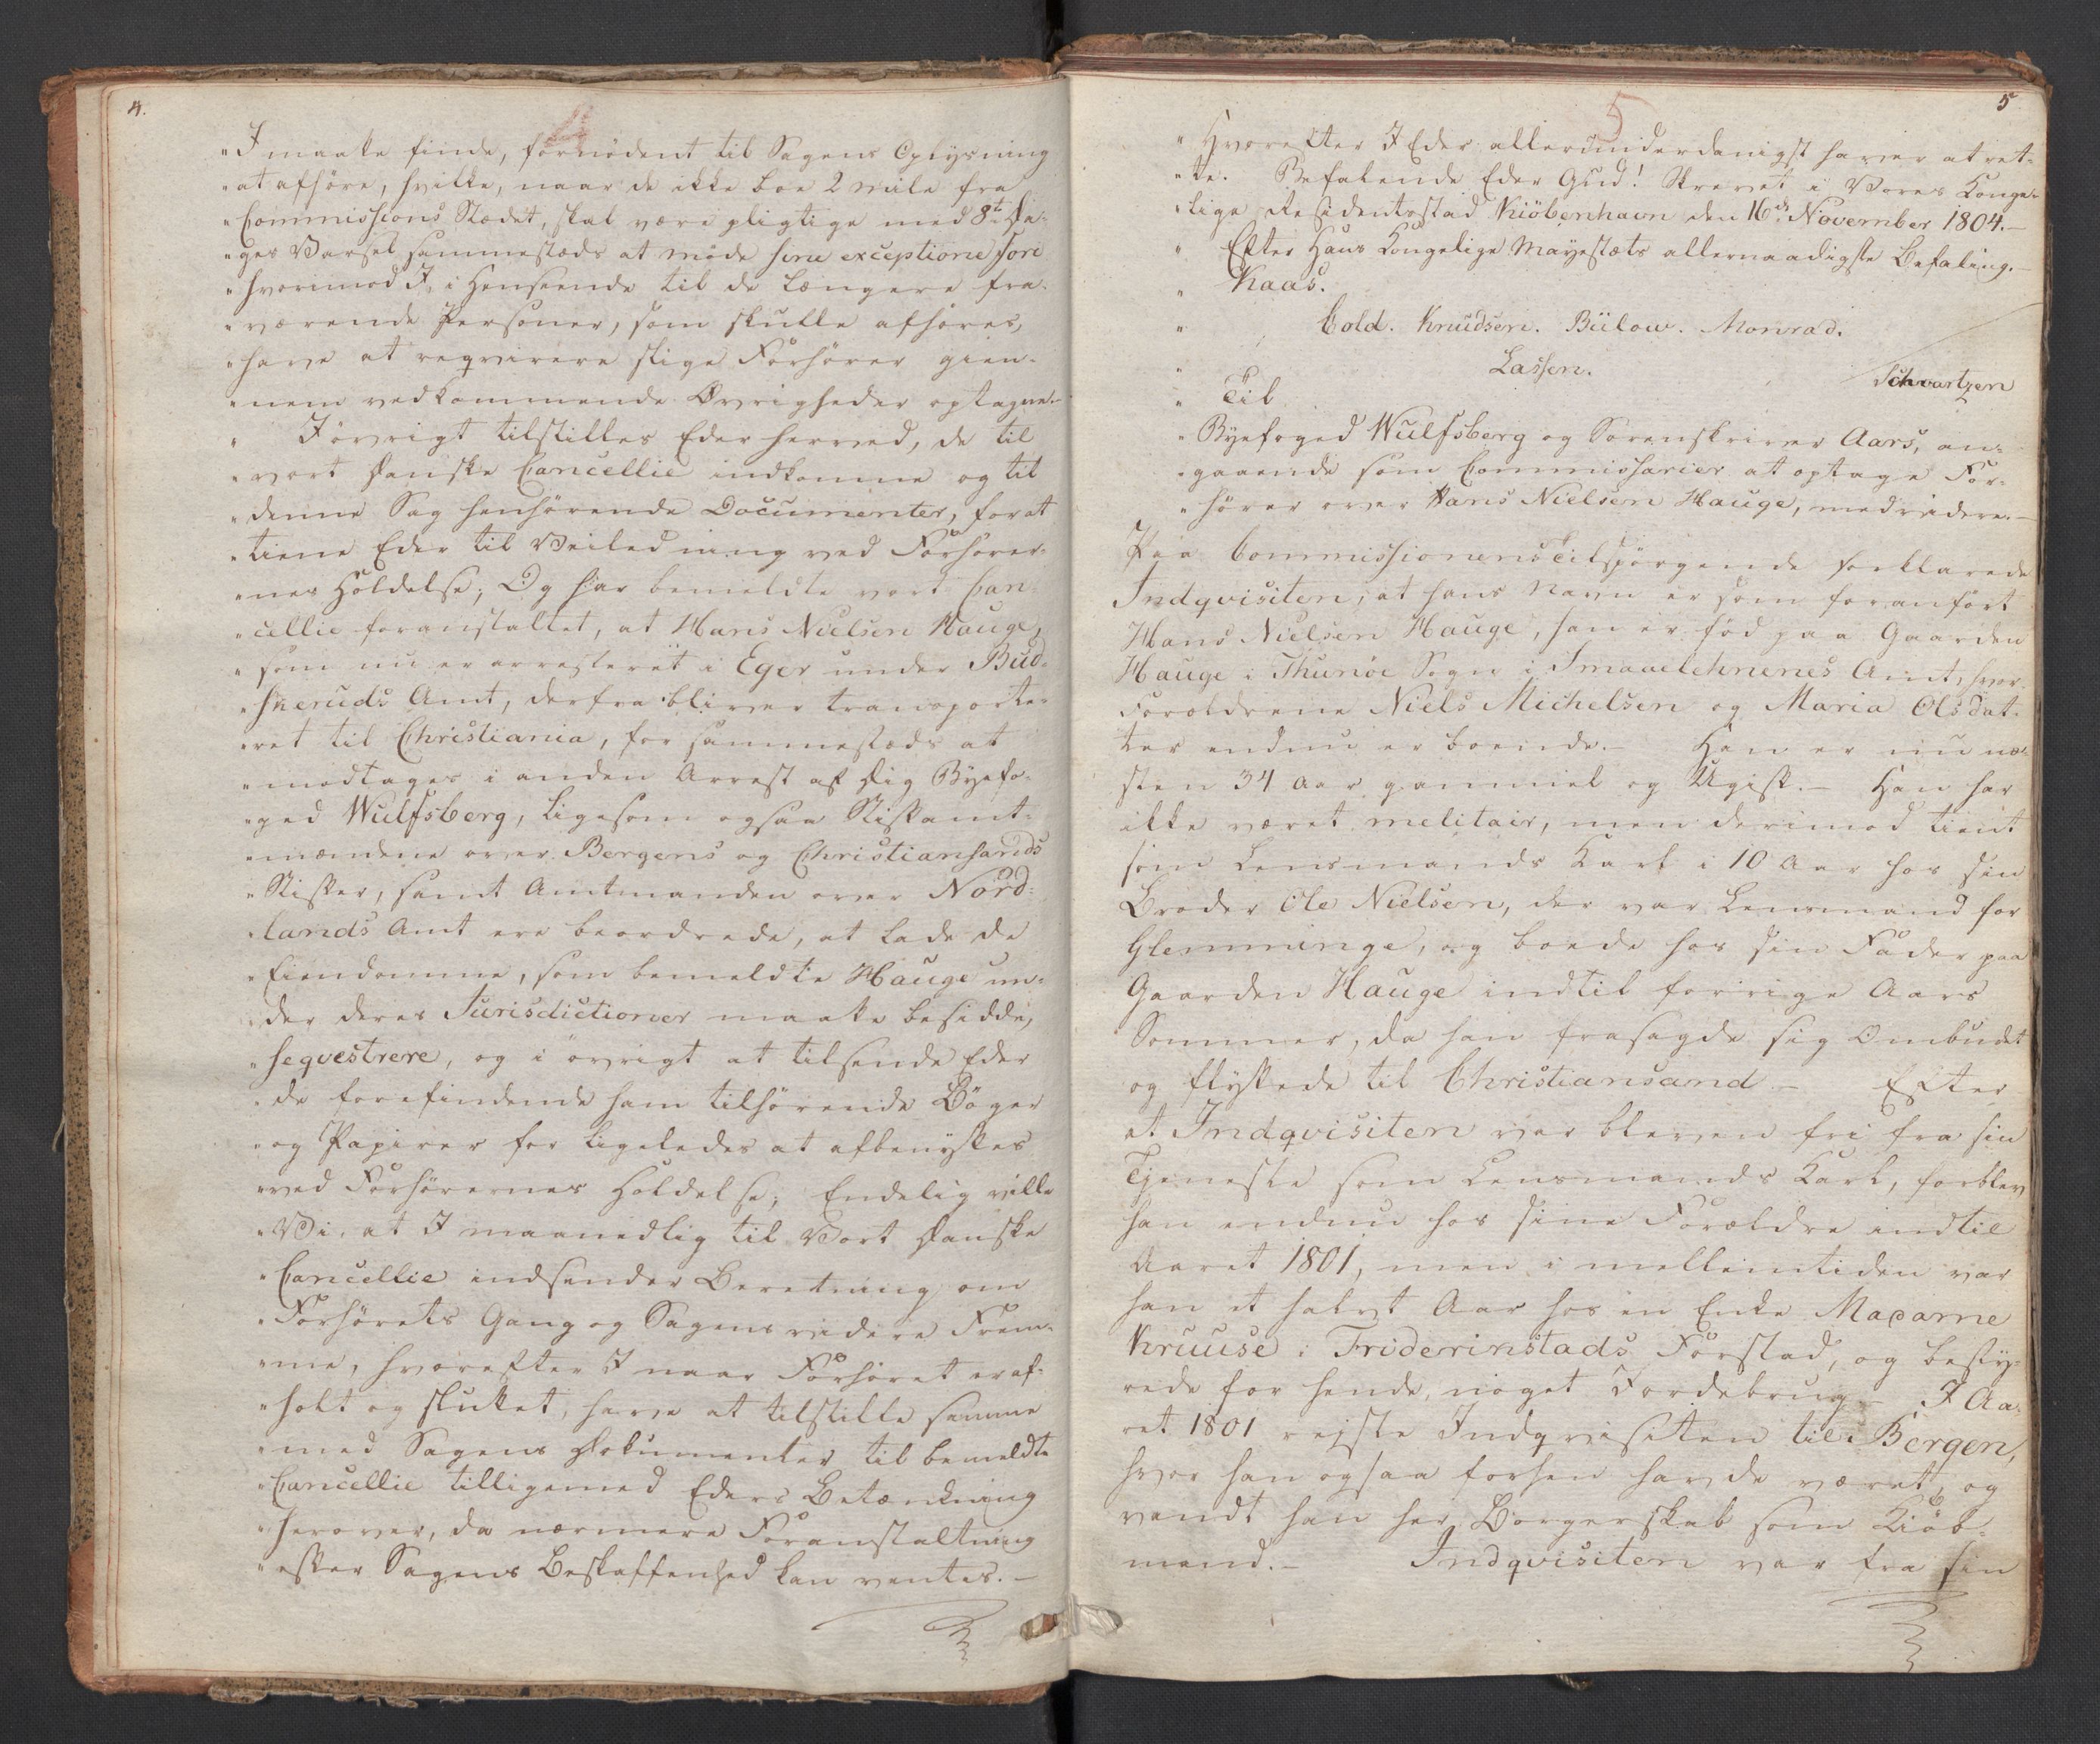 4.
4
"I maatte finde, fornødent til Sagens Oplysning
"at afhöre, hvilke, naar de ikke boe 2 Miile fra
"Commissions Stædet, skal være pligtige med 8te Da-
"ges Varsel sammestæds at møde sine exceptione fori
"hvorimod I, i Henseende til de længere fra-
"værende Personer, som skulle afhøres,
"have at reqvirere slige Forhører gien-
"nem vedkommende Øvrigheder optagne.-
" I øvrigt tilstilles Eder herved, de til
"vort Danske Cancellie indkomne og til
"denne Sag henhørende Documenter, for at
"tiene Eder til Veiledning ved Forhører-
"nes Holdelse; Og har bemeldte vort Can-
"cellie foranstaltet, at Hans Nielsen Hauge,
"som nu er arresteret i Eger under Bud-
"skeruds Amt, derfra bliver transporte-
"ret til Christiania, for sammestæds at
"modtages i anden Arrest af Dig Byefo-
"ged Wulfsberg, ligesom ogsaa Stiftamt-
"mændene over Bergens og Christiansands
"Stifter, samt Amtmanden over Nord-
"lands Amt ere beordrede, at lade de
"Eiendomme, som bemeldte Hauge un-
"der deres Jurisdictioner maatte besidde,
"seqvestrere, og i øvrigt at tilsende Eder
"de forefindende ham tilhørende Bøger
"og Papirer for ligeledes at afbenyttes
"ved Forhørernes Holdelse; Endelig ville
"Vi, at I maanedlig til Vort Danske
"Cancellie indsender Beretning om
"Forhørets Gang og Sagens videre Frem-
"me, hvorefter I naar Forhøret er af-
"holt og sluttet, have at tilstille samme
"med Sagens Dokumenter til bemeldte
"Cancellie tilligemed Eders Betænkning
"herover, da nærmere Foranstaltning
"efter Sagens Beskaffenhed kan ventes.-
5
5
"Hvorefter I Eder allerunderdanigst haver at ret-
"te. Befalende Eder Gud! Skrevet i Vores Konge-
"lige Residentsstad Kiöbenhavn den 16de November 1804.-
" Efter Hans Kongelige Mayestæts allernaadigste Befaling.-
" Kaas.
" Cold. Knudsen. Bülow. Monrad.
" Lassen.
Schvartzen
" Til
"Byefoged Wulfsberg og Sorenskriver Aars, an-
"gaaende som Commissarier at optage For-
"hører over Hans Nielsen Hauge, med videre.-
Paa Commissionens Tilspørgende forklarede
Indqvisiten, at hans Navn er som foranført
Hans Nielsen Hauge, han er fød paa Gaarden
Hauge i Thunöe Sogn i Smaaelehnenes Amt, hvor
Forældrene Niels Michelsen og Maria Olsdat-
ter endnu er boende.- Han er nu næ-
sten 34 Aar gammel og Ugift.- Han har
ikke været melitair, men derimod tient
som Lensmands Karl i 10 Aar hos sin
Broder Ole Nielsen, der var Lensmand for
Glemminge, og boede hos sin Fader paa
Gaarden Hauge indtil forrige Aars
Sommer, da han frasagde sig Ombudet
og flyttede til Christiansand - Efter
at Indqvisiten var bleven fri fra sin
Tjeneste som Lensmands Karl, forblev
han endnu hos sine Forældre indtil
Aaret 1801, men i mellemtiden var
han et halvt Aar hos en Enke Madame
Kruuse i Friderichstads Forstad, og besty-
rede for hende noget Jordebrug - I Aa-
ret 1801 rejste Indqvisiten til Bergen,
hvor han ogsaa forhen havde været, og
vandt han her Borgerskab som Kiöb-
mand.- Indqvisiten var fra sin